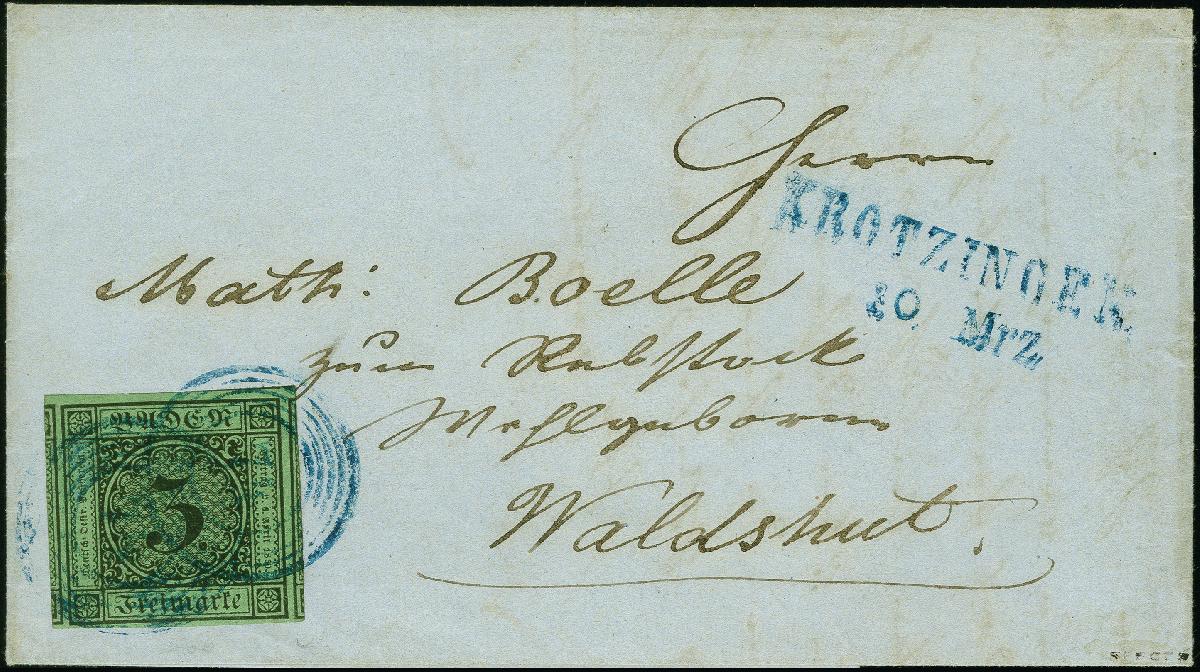 Herrn
KROTZINGEN
10. Mrz
Math: Boelle
zum Rebstock
Wohlgeborn
Waldshut.
BADEN
3.
Freimarke